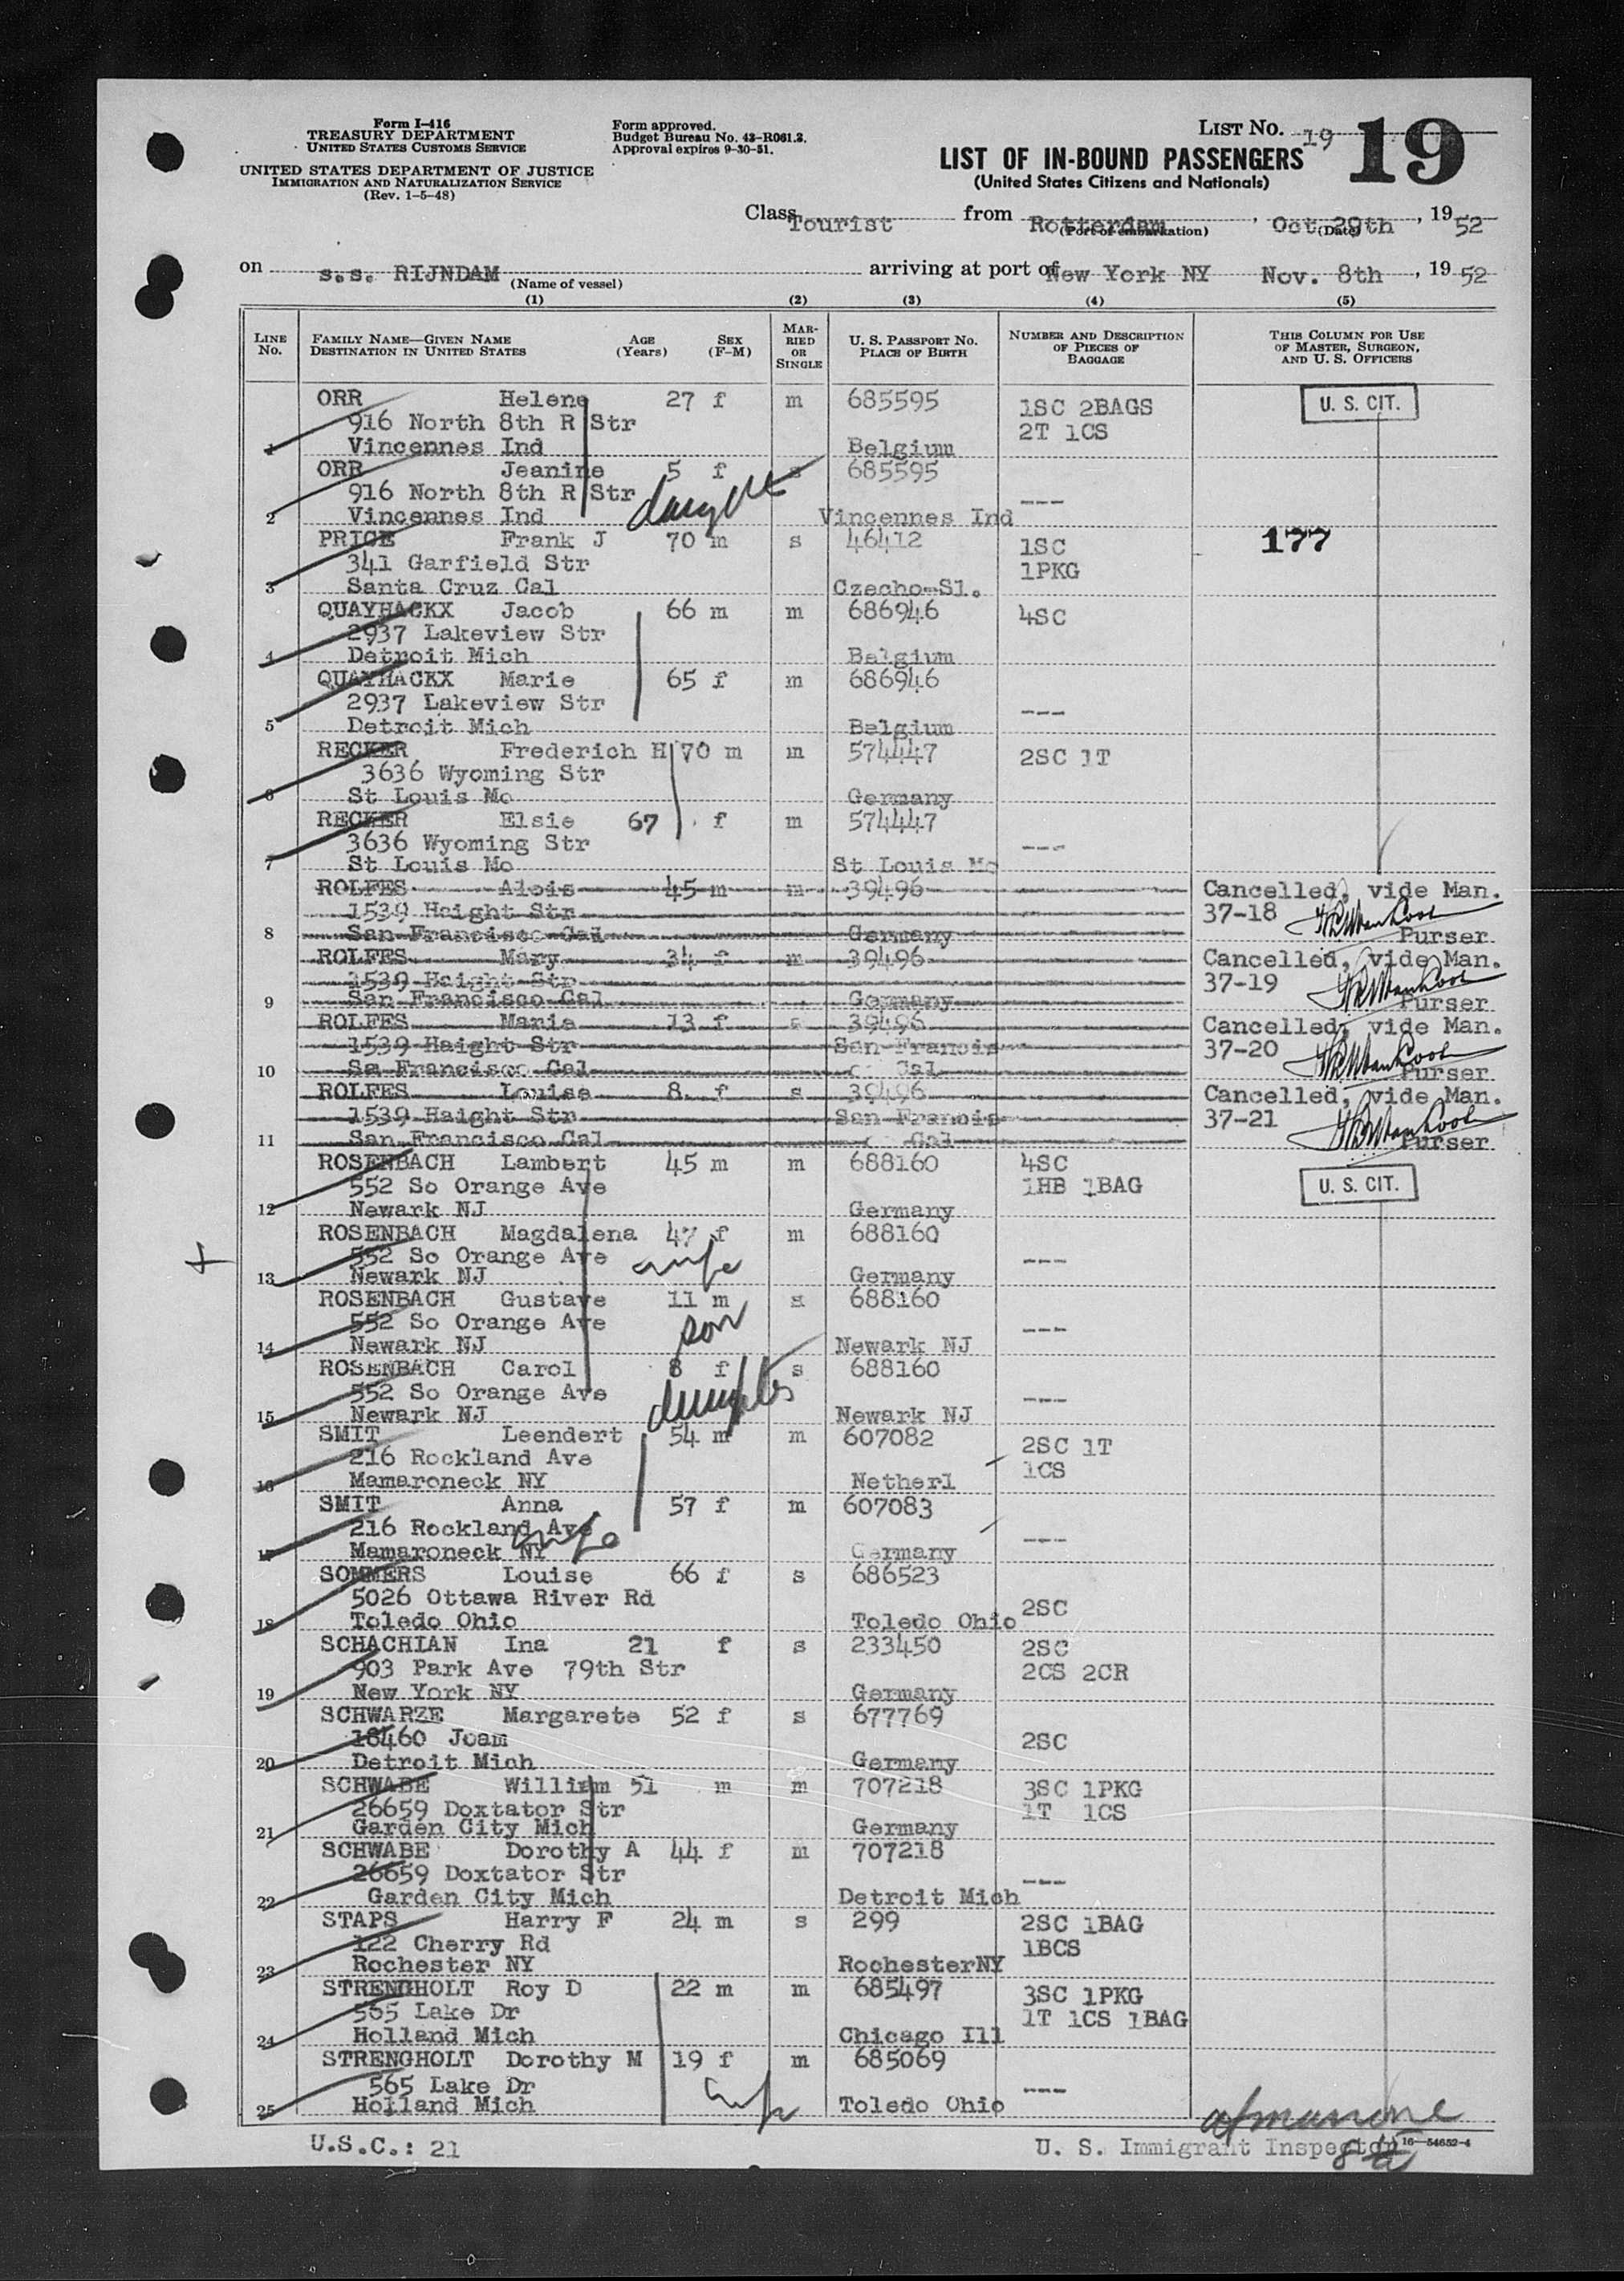 Form I-416
TREASURY DEPARTMENT
UNITED STATES CUSTOMS SERVICE
UNITED STATES DEPARTMENT OF JUSTICE
IMMIGRATION AND NATURALIZATION SERVICE
(Rev. 1-5-48)
Form approved.
Budget Bureau No. 43-R061.3.
Approval expires 9-30-51.
LIST NO. 19 19
LIST OF IN-BOUND PASSENGERS
(United States Citizens and Nationals)
Class Tourist from Rotterdam, Oct 29th, 19 52
(Port of embarkation) (Date)
on s.s. RIJNDAM arriving at port of New York NY Nov. 8th, 19 52
(Name of vessel)
(1) (2) (3) (4) (5)
LINE No. FAMILY NAME—GIVEN NAME DESTINATION IN UNITED STATES AGE (Years) SEX (F-M) MARRIED OR SINGLE U. S. PASSPORT No. PLACE OF BIRTH NUMBER AND DESCRIPTION OF PIECES OF BAGGAGE THIS COLUMN FOR USE OF MASTER, SURGEON, AND U. S. OFFICERS
ORR Helene 27 f m 685595 1SC 2BAGS U. S. CIT.
916 North 8th R Str 2T 1CS
1 Vincennes Ind Belgium
ORR Jeanine 5 f s 685595
916 North 8th R Str ---
2 Vincennes Ind Vincennes Ind
PRICE Frank J 70 m s 46412 1SC 177
341 Garfield Str 1PKG
3 Santa Cruz Cal Czecho-Sl.
QUAYHACKX Jacob 66 m m 686946 4SC
2937 Lakeview Str
4 Detroit Mich Belgium
QUAYHACKX Marie 65 f m 686946
2937 Lakeview Str ---
5 Detroit Mich Belgium
RECKER Frederich H 70 m m 574447 2SC 1T
3636 Wyoming Str
6 St Louis Mo Germany
RECKER Elsie 67 f m 574447
3636 Wyoming Str ---
7 St Louis Mo St Louis Mo
ROLFES Alois 45 m m 39496 Cancelled, vide Man.
1539 Haight Str 37-18
8 San Francisco Cal Germany Purser
ROLFES Mary 34 f m 39496 Cancelled, vide Man.
1539 Haight Str 37-19
9 San Francisco Cal Germany Purser
ROLFES Marie 13 f s 39496 Cancelled, vide Man.
1539 Haight Str San Francis 37-20
10 Sa Francisco Cal co Cal Purser
ROLFES Louise 8 f s 39496 Cancelled, vide Man.
1539 Haight Str San Francis 37-21
11 San Francisco Cal co Cal Purser
ROSENBACH Lambert 45 m m 688160 4SC U. S. CIT.
552 So Orange Ave 1HB 1BAG
12 Newark NJ Germany
ROSENBACH Magdalena 47 f m 688160
552 So Orange Ave wife ---
13 Newark NJ Germany
ROSENBACH Gustave 11 m s 688160
552 So Orange Ave son ---
14 Newark NJ Newark NJ
ROSENBACH Carol 8 f s 688160
552 So Orange Ave ---
15 Newark NJ Newark NJ
SMIT Leendert 54 m m 607082 2SC 1T
216 Rockland Ave 1CS
16 Mamaroneck NY Netherl
SMIT Anna 57 f m 607083
216 Rockland Ave wife ---
17 Mamaroneck NY Germany
SOMMERS Louise 66 f s 686523
5026 Ottawa River Rd 2SC
18 Toledo Ohio Toledo Ohio
SCHACHIAN Ina 21 f s 233450 2SC
903 Park Ave 79th Str 2CS 2CR
19 New York NY Germany
SCHWARZE Margarete 52 f s 677769
18460 Joam 2SC
20 Detroit Mich Germany
SCHWABE William 51 m m 707218 3SC 1PKG
26659 Doxtator Str 1T 1CS
21 Garden City Mich Germany
SCHWABE Dorothy A 44 f m 707218
26659 Doxtator Str ---
22 Garden City Mich Detroit Mich
STAPS Harry F 24 m s 299 2SC 1BAG
122 Cherry Rd 1BCS
23 Rochester NY RochesterNY
STRENGHOLT Roy D 22 m m 685497 3SC 1PKG
565 Lake Dr 1T 1CS 1BAG
24 Holland Mich Chicago Ill
STRENGHOLT Dorothy M 19 f m 685069
565 Lake Dr wife ---
25 Holland Mich Toledo Ohio
U.S.C.: 21 U. S. Immigrant Inspector 16—54652-4